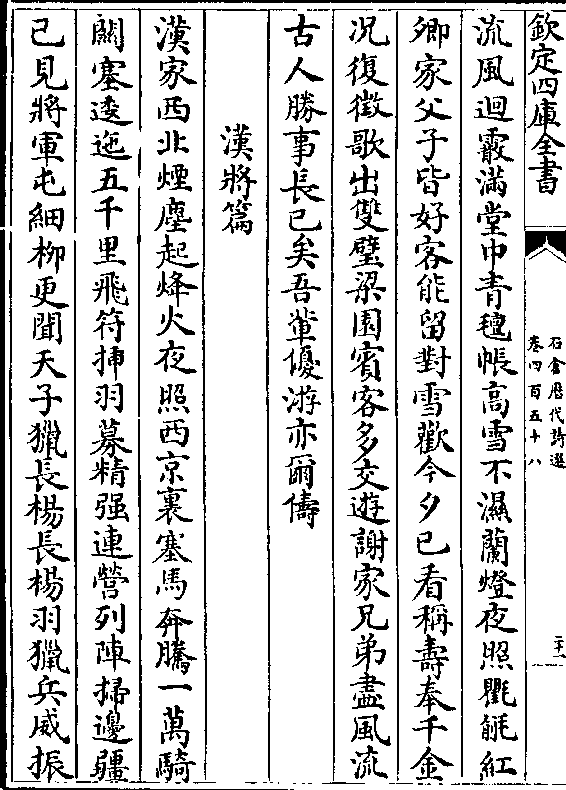 欽定四庫全書
石倉歴代詩選
卷四百五十八
二十一
流風迴霰滿堂中青氊帳高雪不濕蘭燈夜照氍毹紅
卿家父子皆好客能留對雪歡今夕已看稱壽奉千金
况復徴歌出雙璧梁園賓客多交遊謝家兄弟盡風流
古人勝事長已矣吾輩優游亦爾儔
漢將篇
漢家西北煙塵起烽火夜照西京裏塞馬奔騰一萬騎
關塞逶迤五千里飛符揷羽募精强連營列陣掃邊疆
已見將軍屯細柳更聞天子獵長楊長楊羽獵兵威振